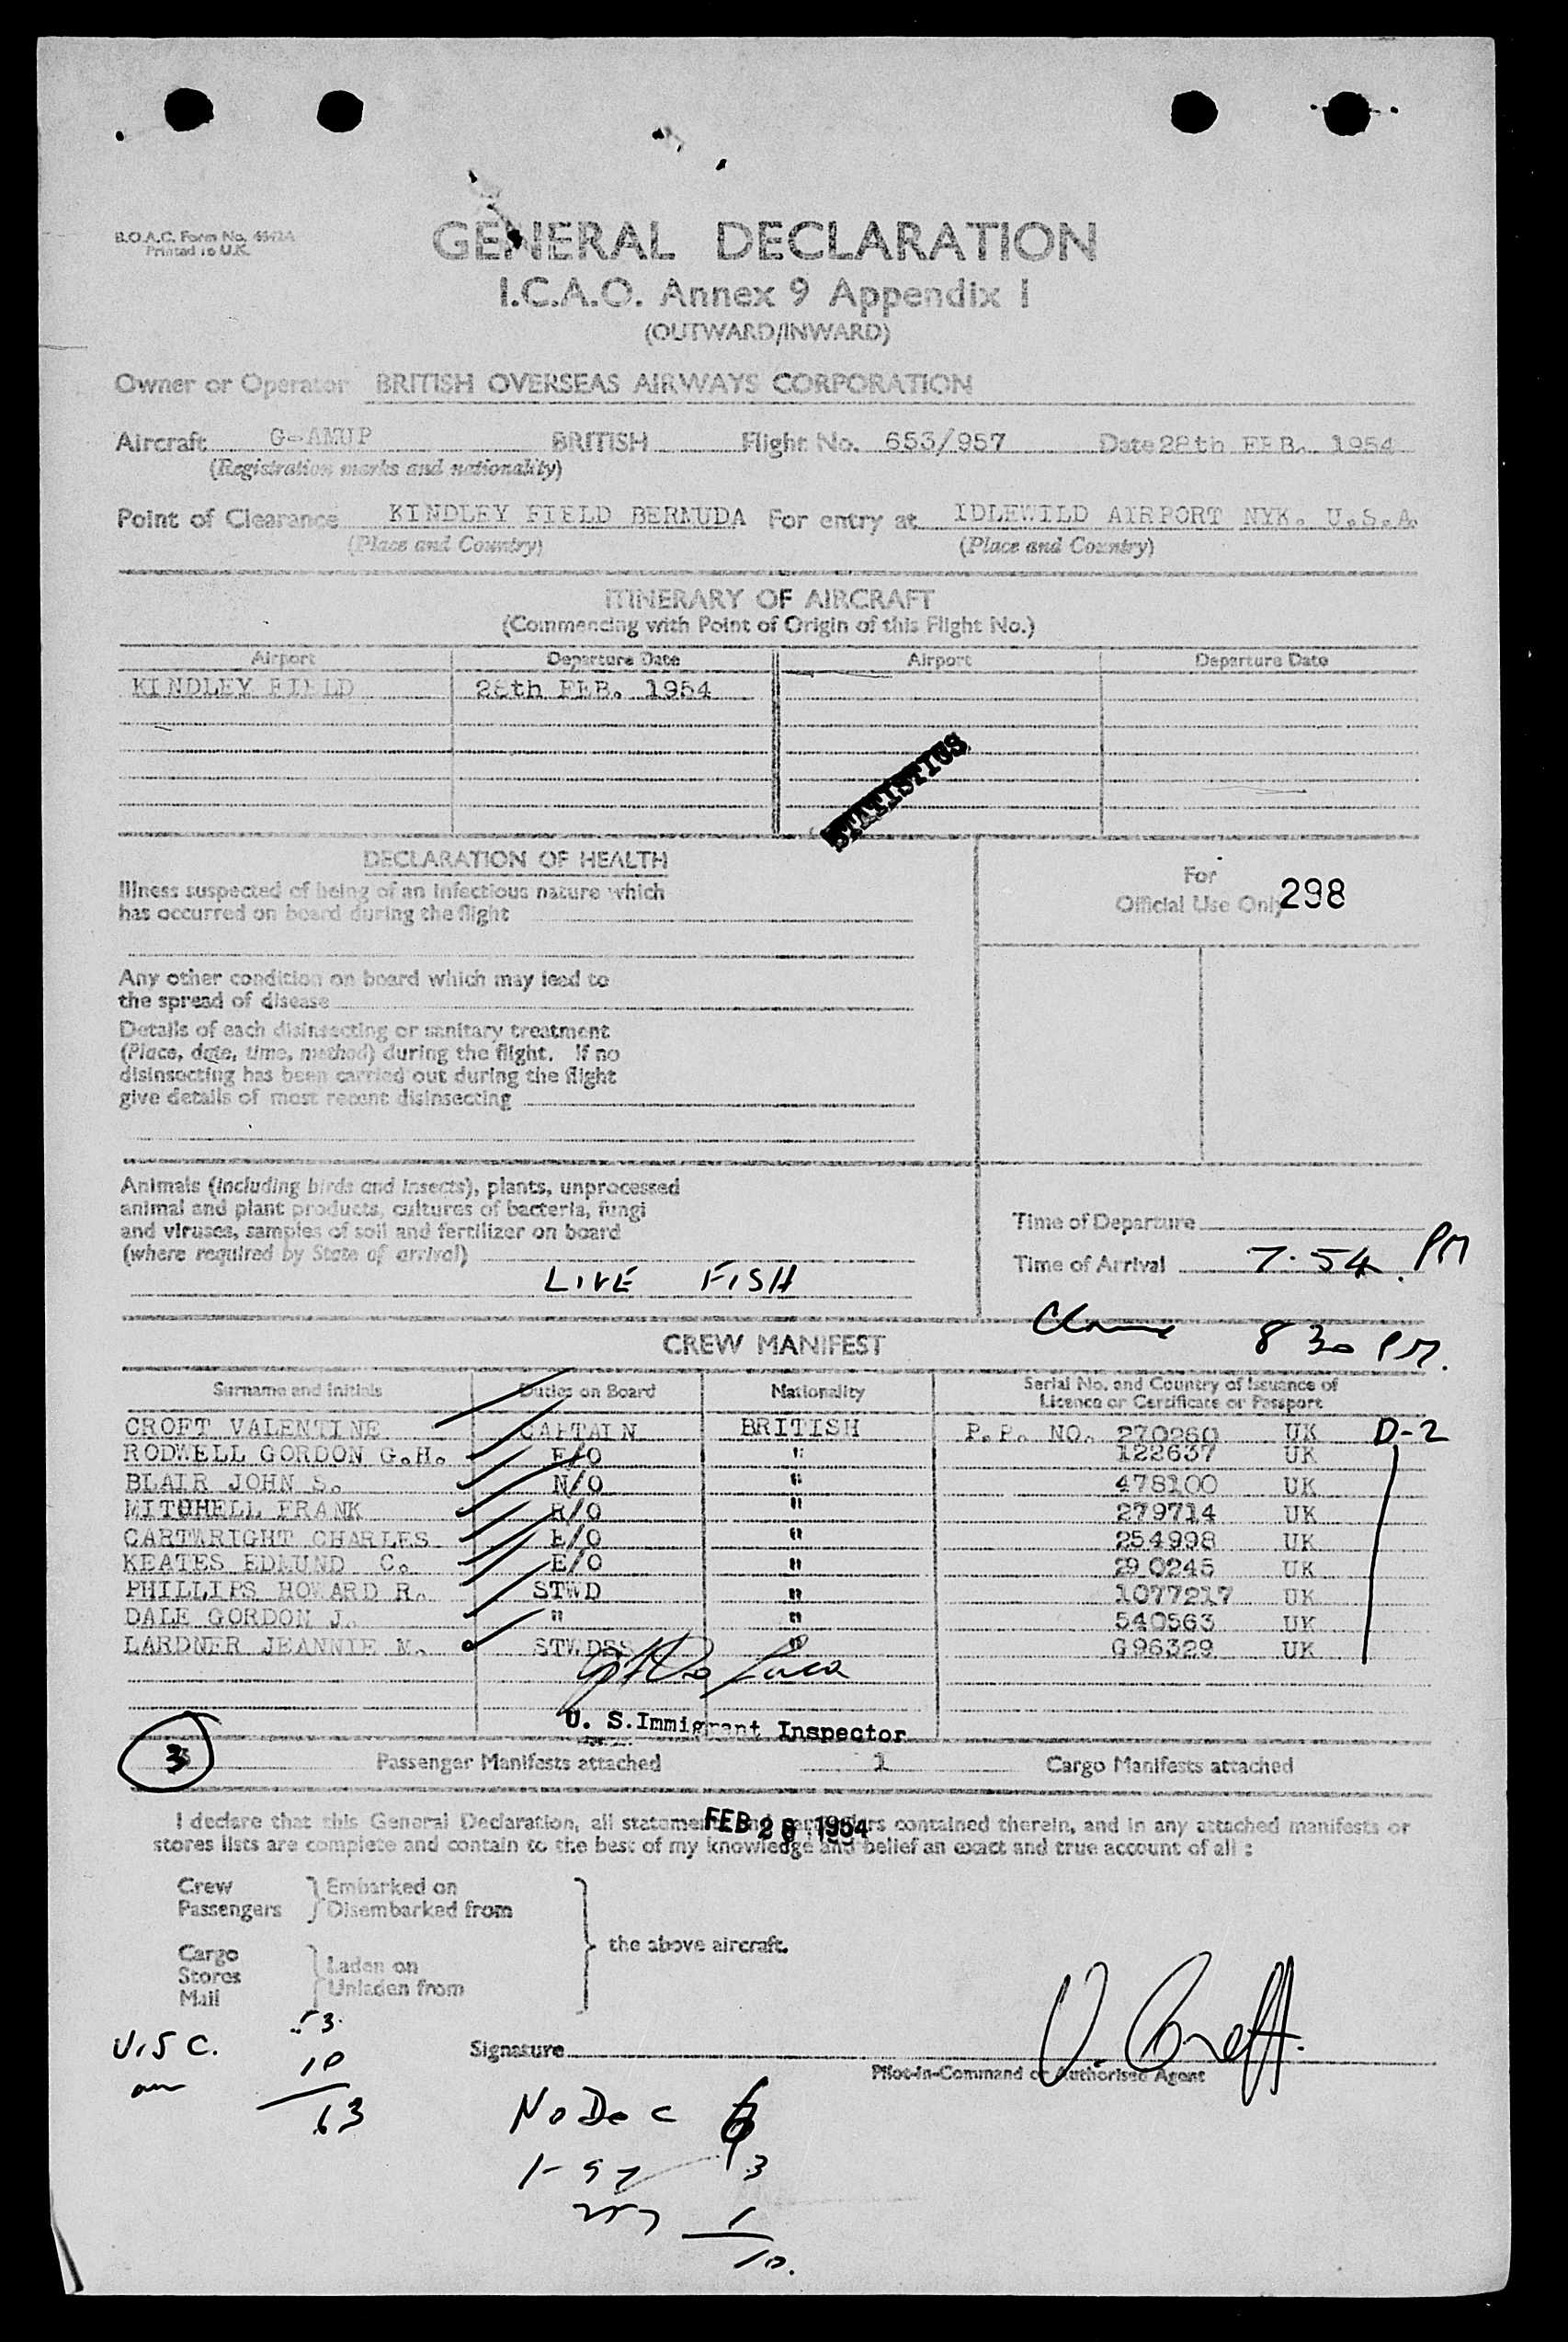 B.O.A.C. Form No.
Printed in U.K.
GENERAL DECLARATION
I.C.A.O. Annex 9 Appendix I
(OUTWARD/INWARD)
Owner or Operator BRITISH OVERSEAS AIRWAYS CORPORATION
Aircraft G-AMUP BRITISH Flight No. 653/957 Date 28th FEB. 1954
(Registration marks and nationality)
Point of Clearance KINDLEY FIELD BERMUDA For entry at IDLEWILD AIRPORT NYK. U.S.A.
(Place and Country) (Place and Country)
ITINERARY OF AIRCRAFT
(Commencing with Point of Origin of this Flight No.)
Airport Departure Date Airport Departure Date
KINDLEY FIELD 28th FEB. 1954
STATISTICS
DECLARATION OF HEALTH
Illness suspected of being of an infectious nature which
has occurred on board during the flight
For
Official Use Only 298
Any other condition on board which may lead to
the spread of disease
Details of each disinsecting or sanitary treatment
(Place, date, time, method) during the flight. If no
disinsecting has been carried out during the flight
give details of most recent disinsecting
Animals (including birds and insects), plants, unprocessed
animal and plant products, cultures of bacteria, fungi
and viruses, samples of soil and fertilizer on board
(where required by State of arrival)
LIVE FISH
Time of Departure
Time of Arrival 7.54 PM
8 30 PM.
CREW MANIFEST
Surname and initials Duties on Board Nationality Serial No. and Country of Issuance of
Licence or Certificate or Passport
CROFT VALENTINE CAPTAIN BRITISH P.P. NO. 270260 UK D-2
RODWELL GORDON G.H. F/O " 122637 UK
BLAIR JOHN S. N/O " 478100 UK
MITCHELL FRANK R/O " 279714 UK
CARTWRIGHT CHARLES E/O " 254998 UK
KEATES EDMUND C. E/O " 290245 UK
PHILLIPS HOWARD R. STWD " 1077217 UK
DALE GORDON J. " " 540563 UK
LARDNER JEANNIE M. STWDSS " G96329 UK
U. S. Immigrant Inspector
3 Passenger Manifests attached 1 Cargo Manifests attached
FEB 28 1954
I declare that this General Declaration, all statements and particulars contained therein, and in any attached manifests or
stores lists are complete and contain to the best of my knowledge and belief an exact and true account of all :
Crew Embarked on
Passengers Disembarked from
the above aircraft.
Cargo
Stores Laden on
Mail Unladen from
U.S C. 53
10
63
Signature V. Croft.
Pilot-in-Command or Authorised Agent
No Dec 6
1-57 3
257 1
10.